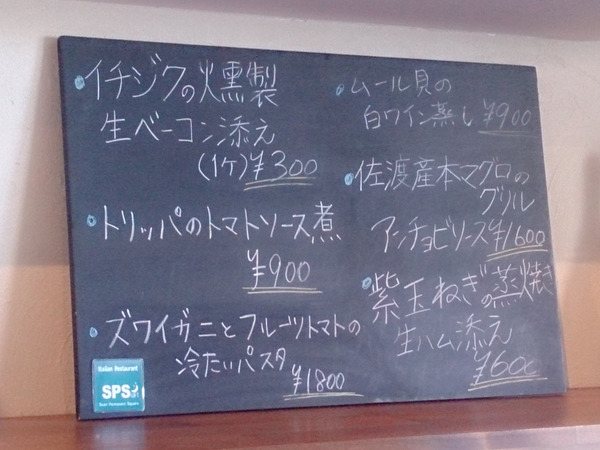 イチジクの燻製
生ベーコン添え
(1ケ)¥300
トリッパのトマトソース煮
¥900
ズワイガニとフルーツトマトの
冷たいパスタ
¥1800
ムール貝の
白ワイン蒸し ¥900
佐渡産本マグロの
グリル
アンチョビソース ¥1600
紫玉ねぎの蒸焼き
生ハム添え
¥600
Italian Restaurant
SPS